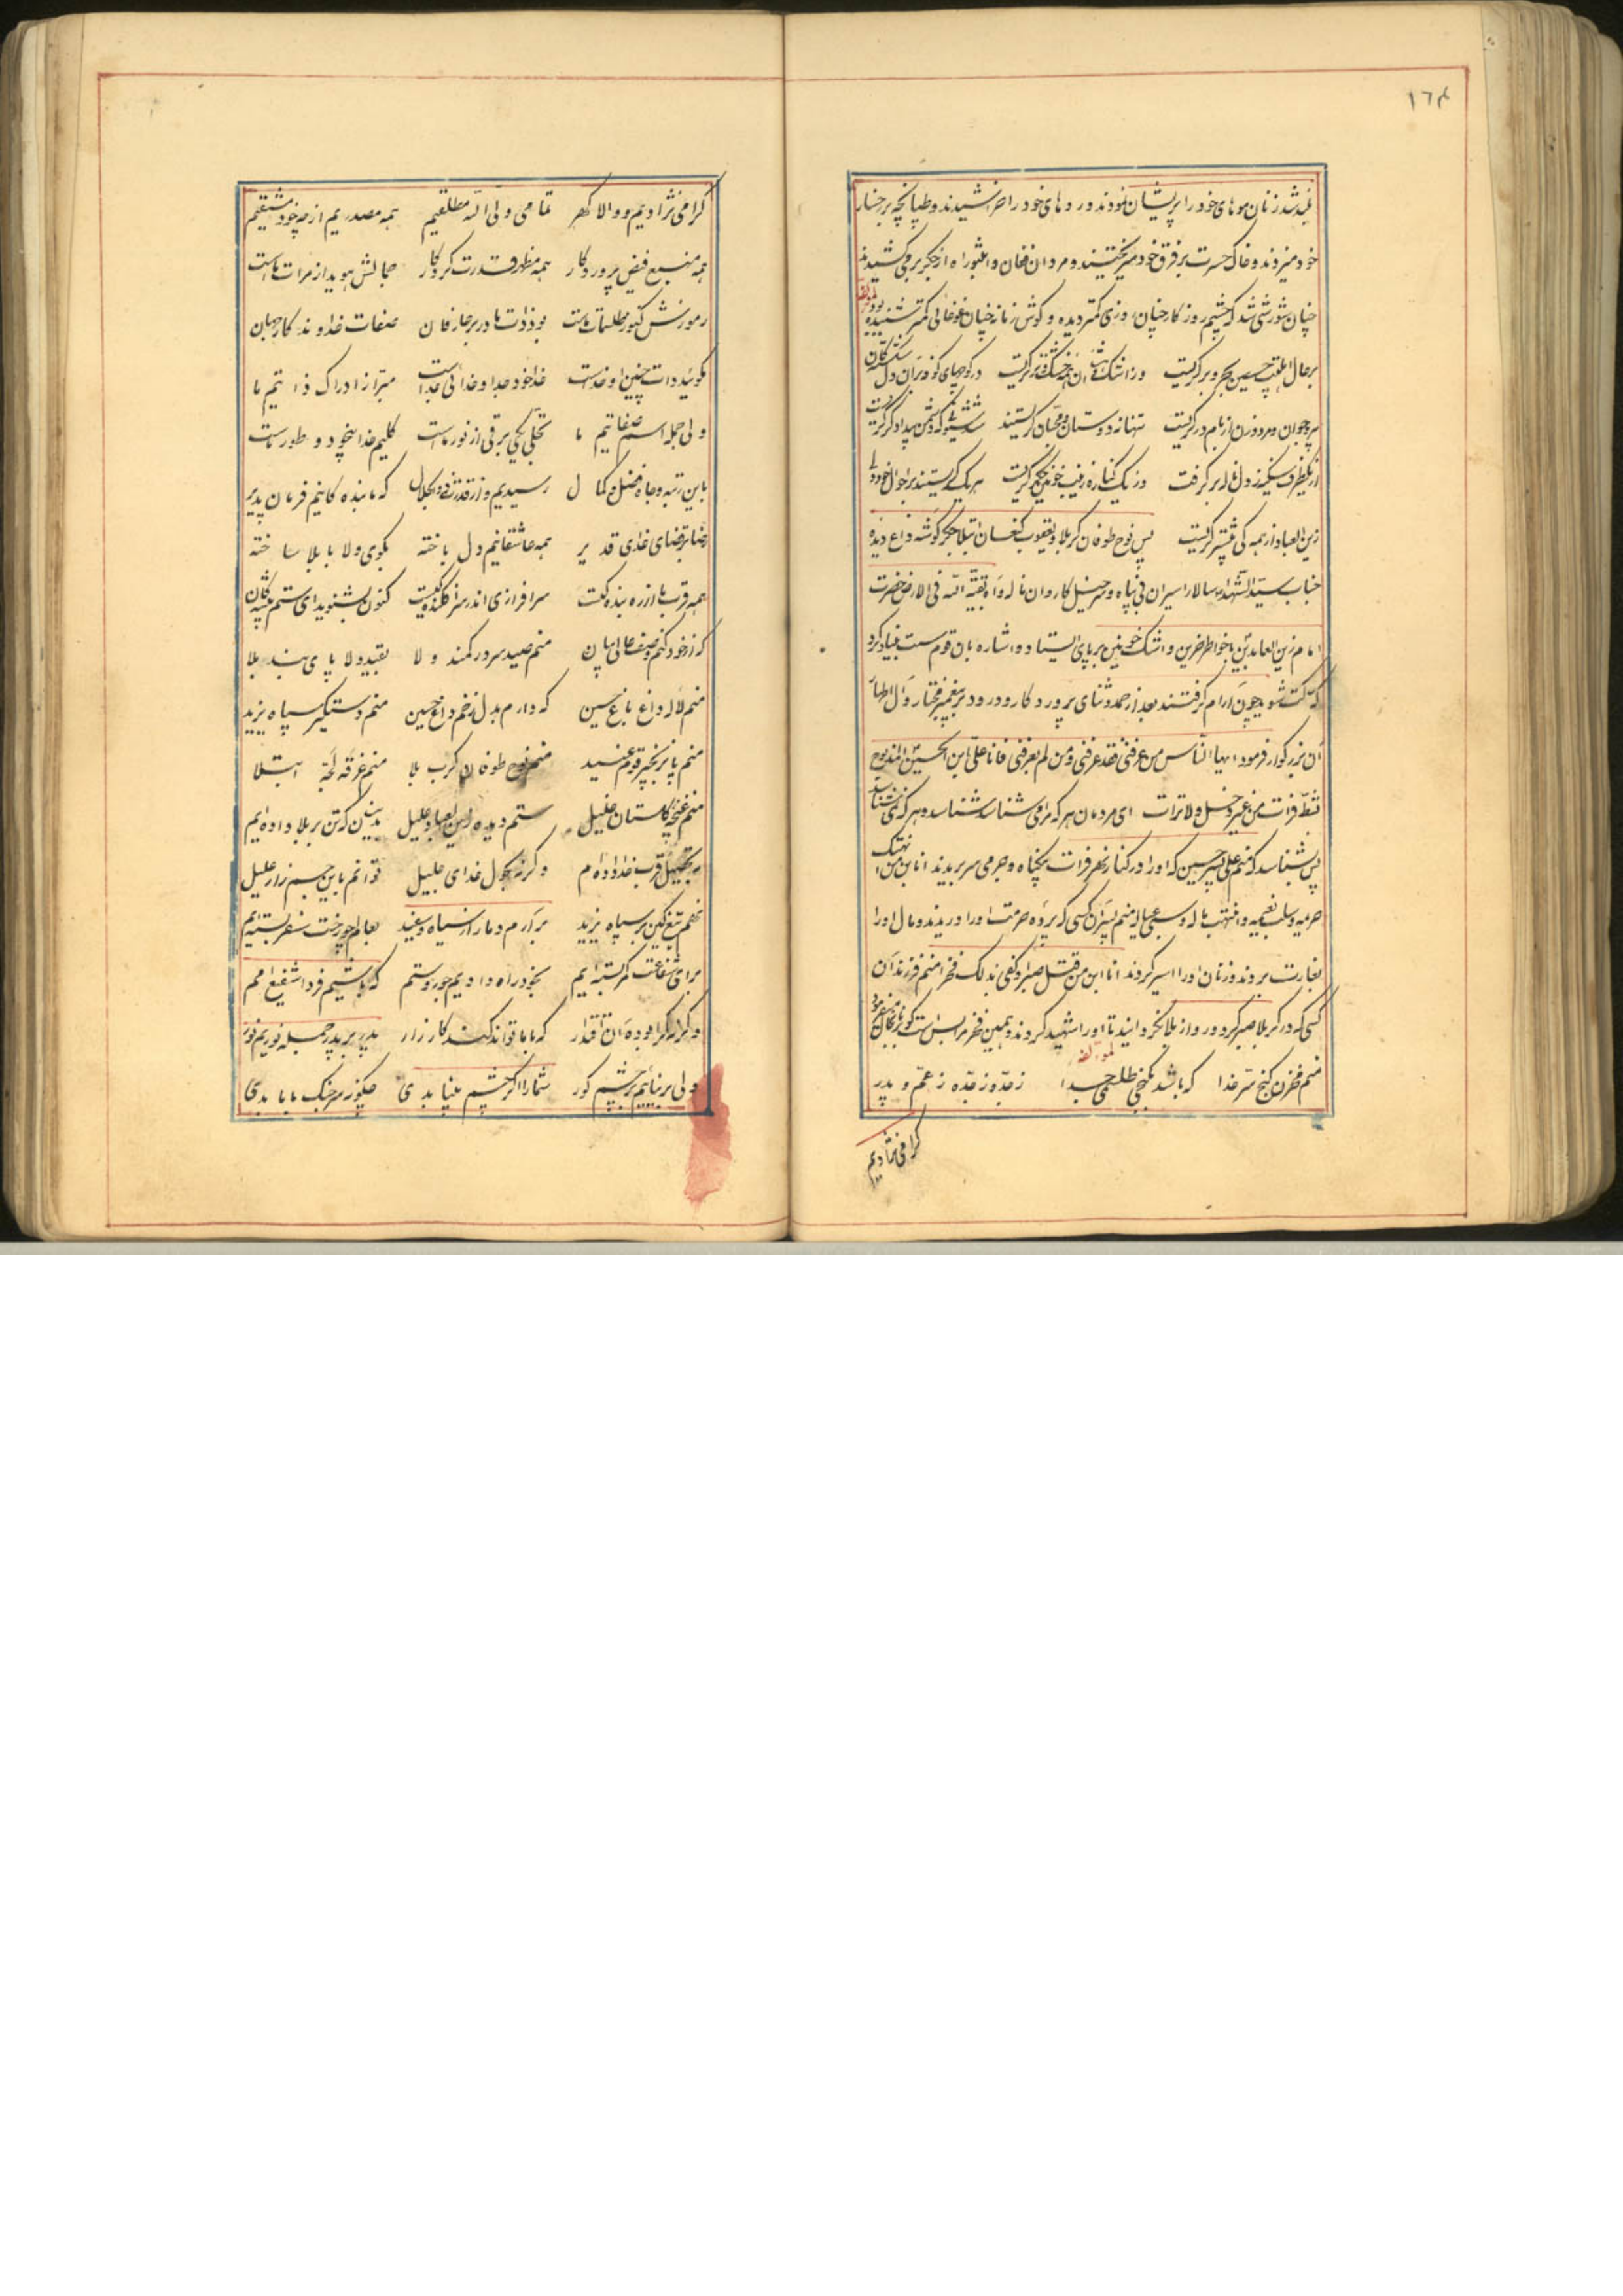 ١٦٤
بلند شد زنان موهای خود را پریشان نمودند و روهای خود را خراشیدند و طپانچه بر رخسار
خود میزدند و خاک حسرت بر فرق خود میریختند و مردان فغان و اثبوراه از جگر بر می کشیدند
چنان شورشی شد که چشم روزگار چنان روزی کمتر دیده و گوش زمانه چنان غوغائی کمتر شنیده بود
لمؤلفه
بر حال اهلبیت حسین بحر و بر گریست وز اشک خشک و تر گریست در کوچهای کوفه
پیر و جوان و مرد و زن از بام و در گریست تنها نه دوستان و محبان گریستند دشمن
از یکطرف سکینه ز دل ناله بر گرفت وز یک کناره زینب خونین جگر گریست هر یک گریستند بر احوال خود ولی
زین العباد از همه کی بیشتر گریست پس نوح طوفان کربلا و یعقوب کنعان ابتلا جگر گوشه داغ دیده
جناب سید الشهداء سالار اسیران بی پناه و سرخیل کاروان ناله و آه بقیة الله فی الارض حضرت
امام زین العابدین با خواطر حزین و اشک خونین بر پای ایستاد و اشاره بان قوم سست بنیاد کرد
که ساکت شوید چون آرام گرفتند بعد از حمد و ثنای پروردگار و درود بر پیغمبر مختار و آل اطهار
آن بزرگوار فرمود ایها الناس من عرفنی فقد عرفنی و من لم یعرفنی فانا علی ابن الحسین المذبوح
بشط فرات من غیر دخل و لا ترات ای مردمان هر که مرا می شناسد شناسد و هر که نمی شناسد
پس بشناسد که منم علی پسر حسین که او را در کنار نهر فرات بیگناه و جرمی سر بریدند انا بن من انتهک
حریمه و سلب نعیمه و انتهب ماله و سبی عیاله منم پسر آن کسی که پرده حرمت او را دریدند و مال او را
بغارت بردند و زنان او را اسیر کردند انا ابن من قتل صبرا و کفی بذلک فخرا منم فرزند آن
کسی که در کربلا صبر کرد و رو از بلا نگردانید تا او را شهید کردند و همین فخر مرا بس است
لمؤلفه
منم مخزن گنج سر خدا که باشد بگنجی طلسمی جدا ز جد و ز جده ز عم و پدر
گرامی نژادیم
گرامی نژادیم و والا گهر تمامی ولی اله مطلقیم همه مصدریم از چه خود مشتقیم
همه منبع فیض پروردگار همه مظهر قدرت کردگار جمالش هویدا ز مرات ماست
رموزش کنوز طلسمات ماست بود ذات ما در بر عارفان صفات خداوند کار جهان
مگوئید ذات چنین او خداست خدا خود جدا و خدائی جداست مبرا ز ادراک ذاتیم ما
ولی جمله اسم صفاتیم ما تجلی یکی برقی از نور ماست کلیم خدا بیخود و طور ماست
باین رتبه و جاه و فضل و کمال رسیدیم و از قدرت ذو الجلال که ما بنده گانیم فرمان پذیر
رضا بر قضای خدای قدیر همه عاشقانیم دل باخته بکوی ولا با بلا ساخته
همه قرب ما از ره بنده گیست سرافرازی اندر سر افکنده گیست کنون بشنوید ای ستم پیشه گان
که از خود کنم وصف حالی بیان منم صید سر در کمند ولا بقید ولا پای بند بلا
منم لاله داغ باغ حسین که دارم بدل زخم داغ حسین منم دستگیر سپاه یزید
منم پا بزنجیر قوم عنید منم نوح طوفان کرب بلا منم غرقه لجه ابتلا
منم غنچه گلستان خلیل ستم دیده زین العباد علیل ببینین که تن بر بلا داده ایم
به تحصیل قرب خدا داده ام و گرنه بحول خدای جلیل توانم باین جسم زار علیل
نهم تیغ کین بر سپاه یزید بر آرم دمار از سیاه و سفید بعالم چو رخت سفر بسته ایم
برای شفاعت کمر بسته ایم بخود راه دادیم جور و ستم که باشیم فردا شفیع امم
و گرنه کرا بوده آن اقتدار که با ما تواند کند کارزار پدر بر پدر جمله نوریم نور
ولی بر نیائیم بر چشم کور شما را اگر چشم بینا بدی چگونه سر جنگ با ما بدی